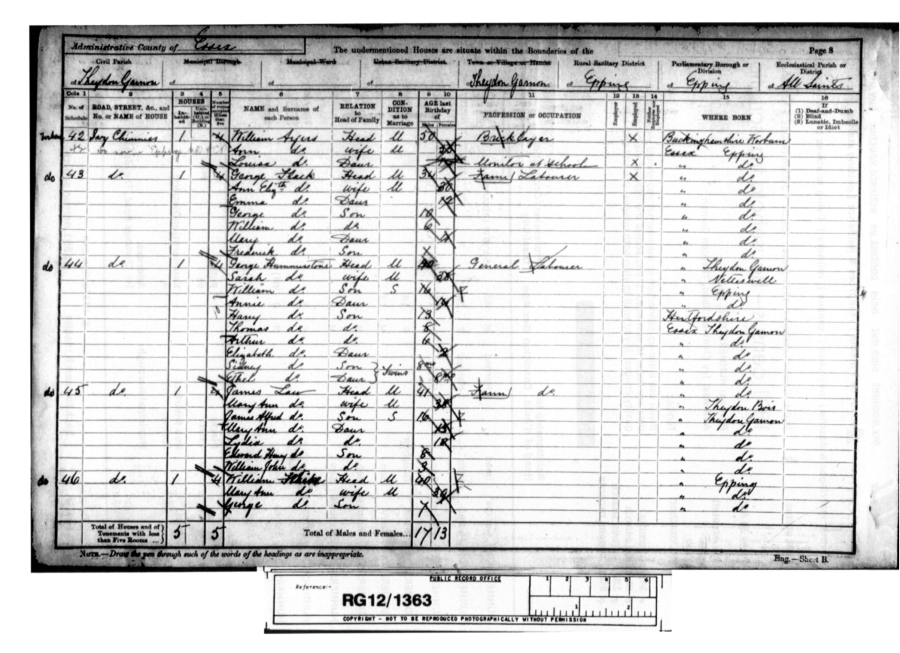 Administrative County of Essex The undermentioned Houses are situate within the Boundaries of the Page 8
Civil Parish Municipal Borough Municipal Ward Urban Sanitary District Town or Village or Hamlet Rural Sanitary District Parliamentary Borough or Division Ecclesiastical Parish or District
of Theydon Garnon of of of of Theydon Garnon of Epping of Epping of All Saints
Cols 1 2 3 4 5 6 7 8 9 10 11 12 13 14 15 16
No. of Schedule ROAD, STREET, &c., and No. or NAME of HOUSE HOUSES NAME and Surname of each Person RELATION to Head of Family CONDITION as to Marriage AGE last Birthday of PROFESSION or OCCUPATION Employer Employed WHERE BORN If (1) Deaf-and-Dumb (2) Blind (3) Lunatic, Imbecile or Idiot
42 Ivy Chimnies 1 4 William Ayers Head M 50 Bricklayer X Buckinghamshire Woburn
Ann do wife M Essex Epping
Louisa do Daur Monitor at School X " do
do 43 do 1 4 George Flack Head M 34 Farm Labourer X " do
Ann Elizth do wife M 30 " do
Emma do Daur 12 " do
George do Son 10 " do
William do do 6 " do
Mary do Daur " do
Frederick do Son " do
do 44 do 1 4 George Hummerstone Head M 40 General Labourer " Theydon Garnon
Sarah do wife M 38 " Netteswell
William do Son S 16 " Epping
Annie do Daur 14 " do
Harry do Son 13 Hertfordshire
Thomas do do 8 Essex Theydon Garnon
Arthur do do 6 " do
Elizabeth do Daur 2 " do
Sidney do Son Twins 8 " do
Ethel do Daur 8 " do
do 45 do 1 4 James Law Head M 41 Farm do " do
Mary Ann do wife M 38 " Theydon Bois
James Alfred do Son S 16 " Theydon Garnon
Mary Ann do Daur 13 " do
Lydia do do " do
Edward Henry do Son 8 " do
William John do do 3 " do
do 46 do 1 4 William Head M 40 " Epping
Mary Ann do wife M 39 " do
George do Son 7 " do
Total of Houses and of Tenements with less than Five Rooms 5 5 Total of Males and Females... 17 13
NOTE.—Draw the pen through such of the words of the headings as are inappropriate. Eng.—Sheet B.
PUBLIC RECORD OFFICE 1 2 3 4 5 6
Reference:-
RG12/1363
1 2
COPYRIGHT - NOT TO BE REPRODUCED PHOTOGRAPHICALLY WITHOUT PERMISSION